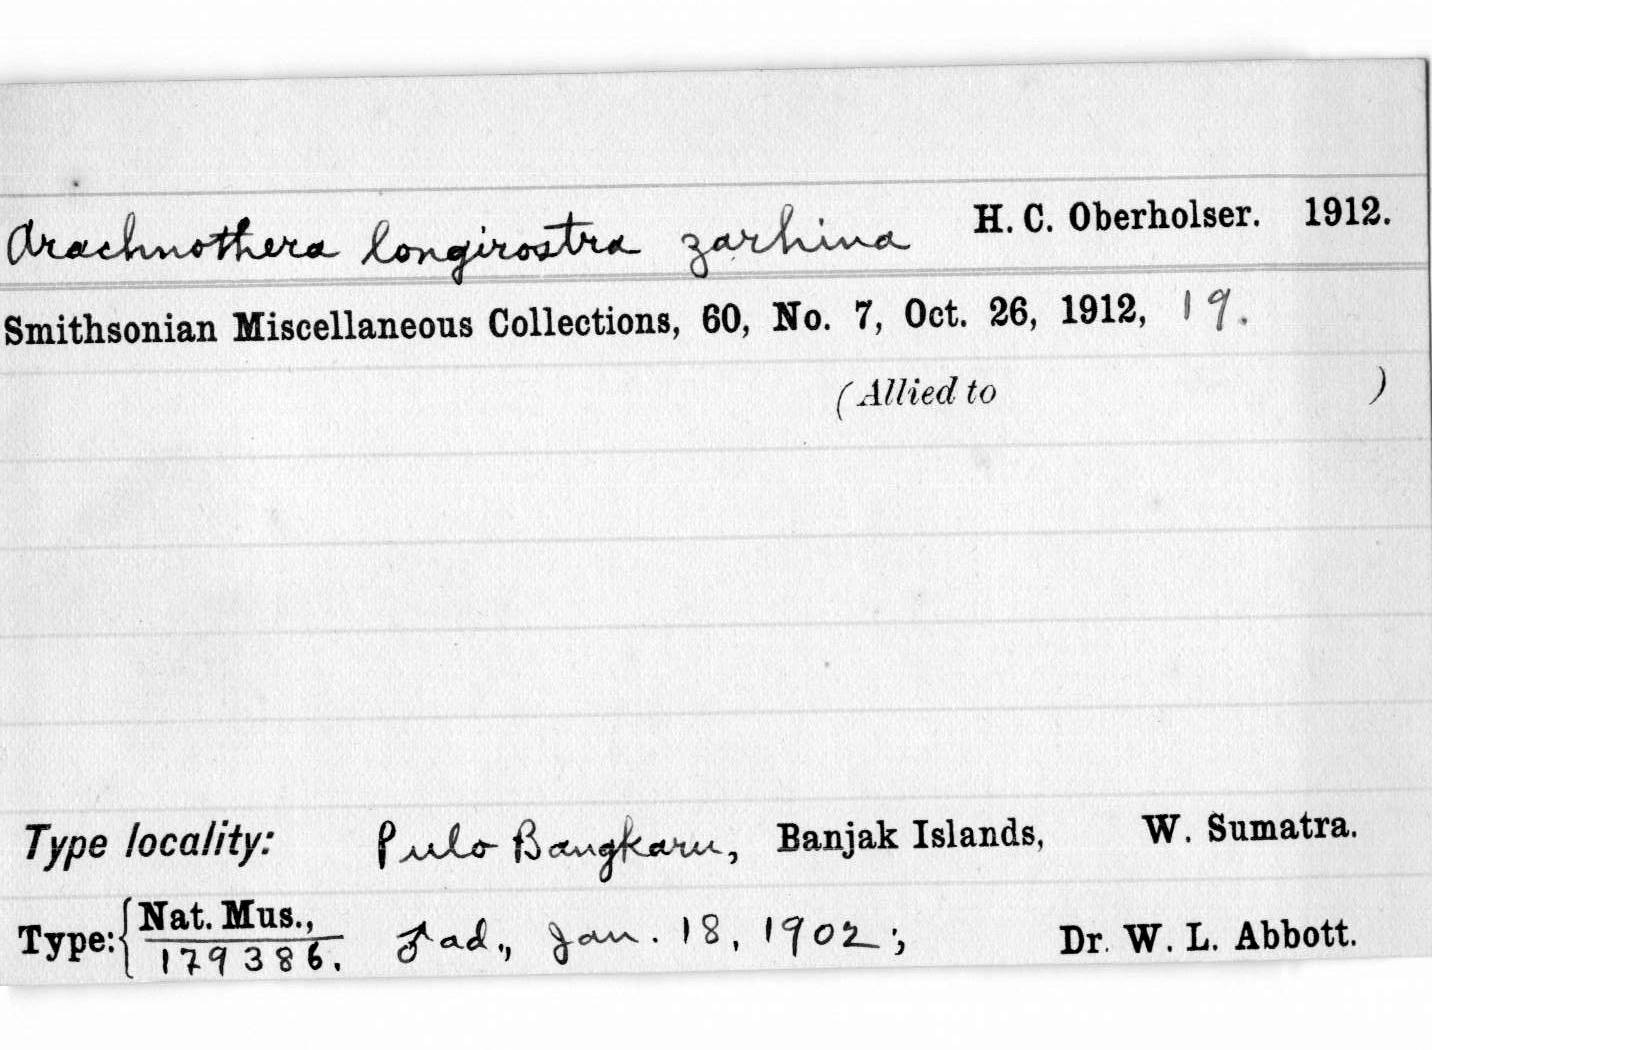 Arachnothera longirostra zarhina H. C. Oberholser. 1912.
Smithsonian Miscellaneous Collections, 60, No. 7, Oct. 26, 1912, 19.
(Allied to )
Type locality: Pulo Bangkaru, Banjak Islands, W. Sumatra.
Type: { Nat. Mus., 179386. ♂ ad., Jan. 18, 1902; Dr. W. L. Abbott.